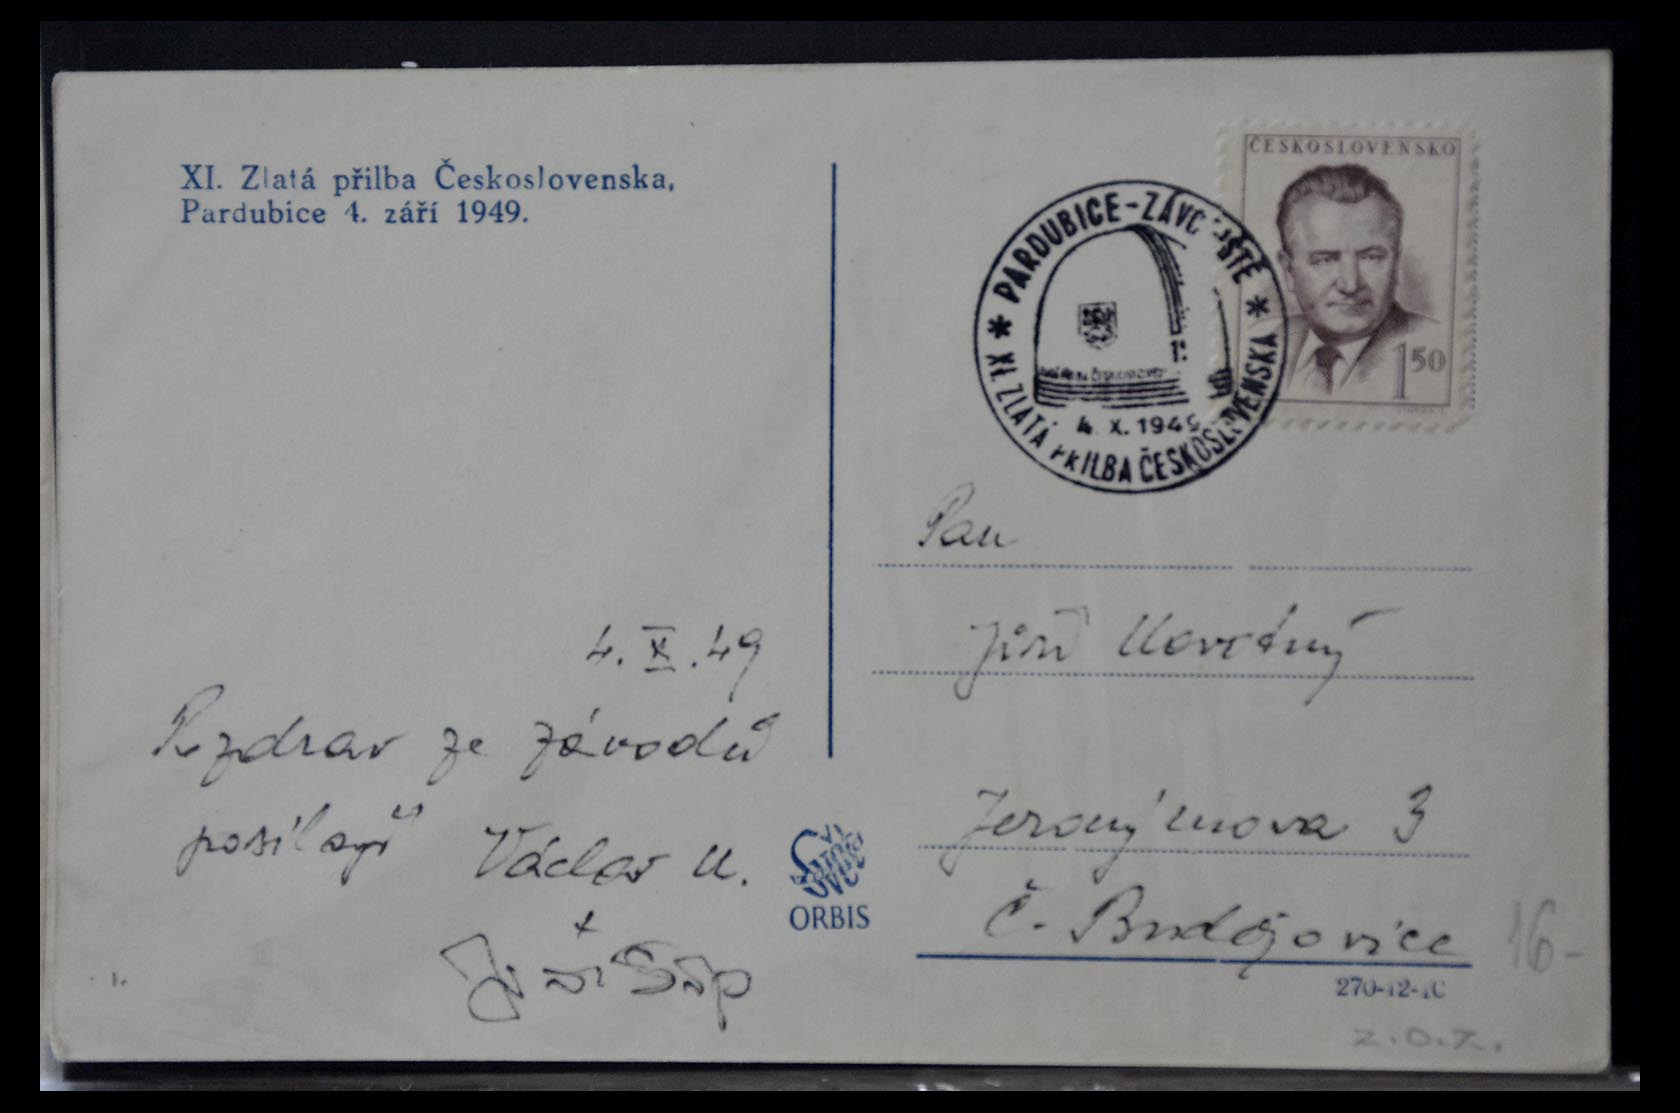 XI. Zlatá přilba Československa,
Pardubice 4. září 1949.
ČESKOSLOVENSKO
1 50
* PARDUBICE-ZÁVODIŠTĚ *
XI. ZLATÁ PŘILBA ČESKOSLOVENSKA
4. X. 1949
Pan
Jiří
Jeronýmova 3
Č. Budějovice
4. X. 49
Pozdrav ze závodů
posílají Václav
ORBIS
16-
Z.O.Z.